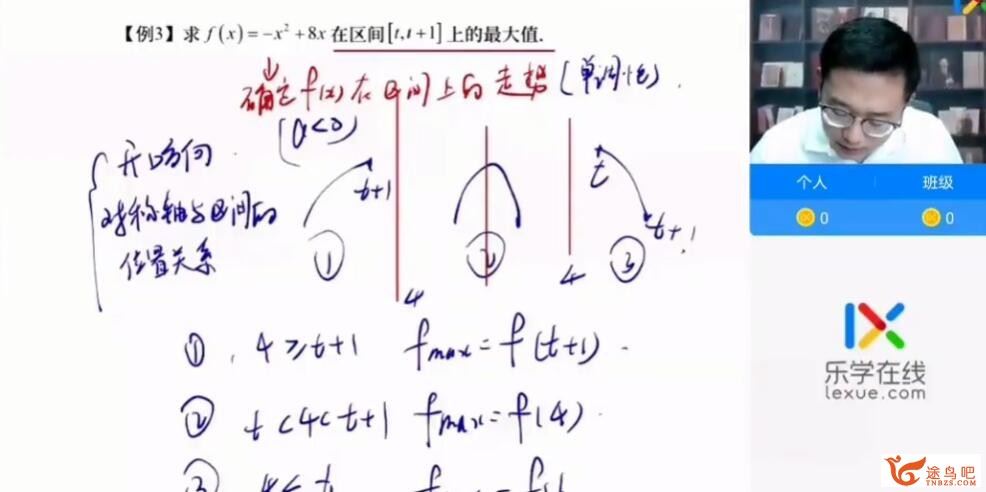 【例3】求 f(x)=-x²+8x 在区间[t,t+1]上的最大值.
确定f(x)在区间上的走势(单调性).
(a<0)
开口方向
对称轴与区间的
位置关系
t+1
t
t+1
① ② ③
4
4
① 4≥t+1 fmax=f(t+1).
② t<4<t+1 fmax=f(4).
③
个人 班级
0 0
乐学在线
lexue.com
途鸟吧
TNBZS.COM